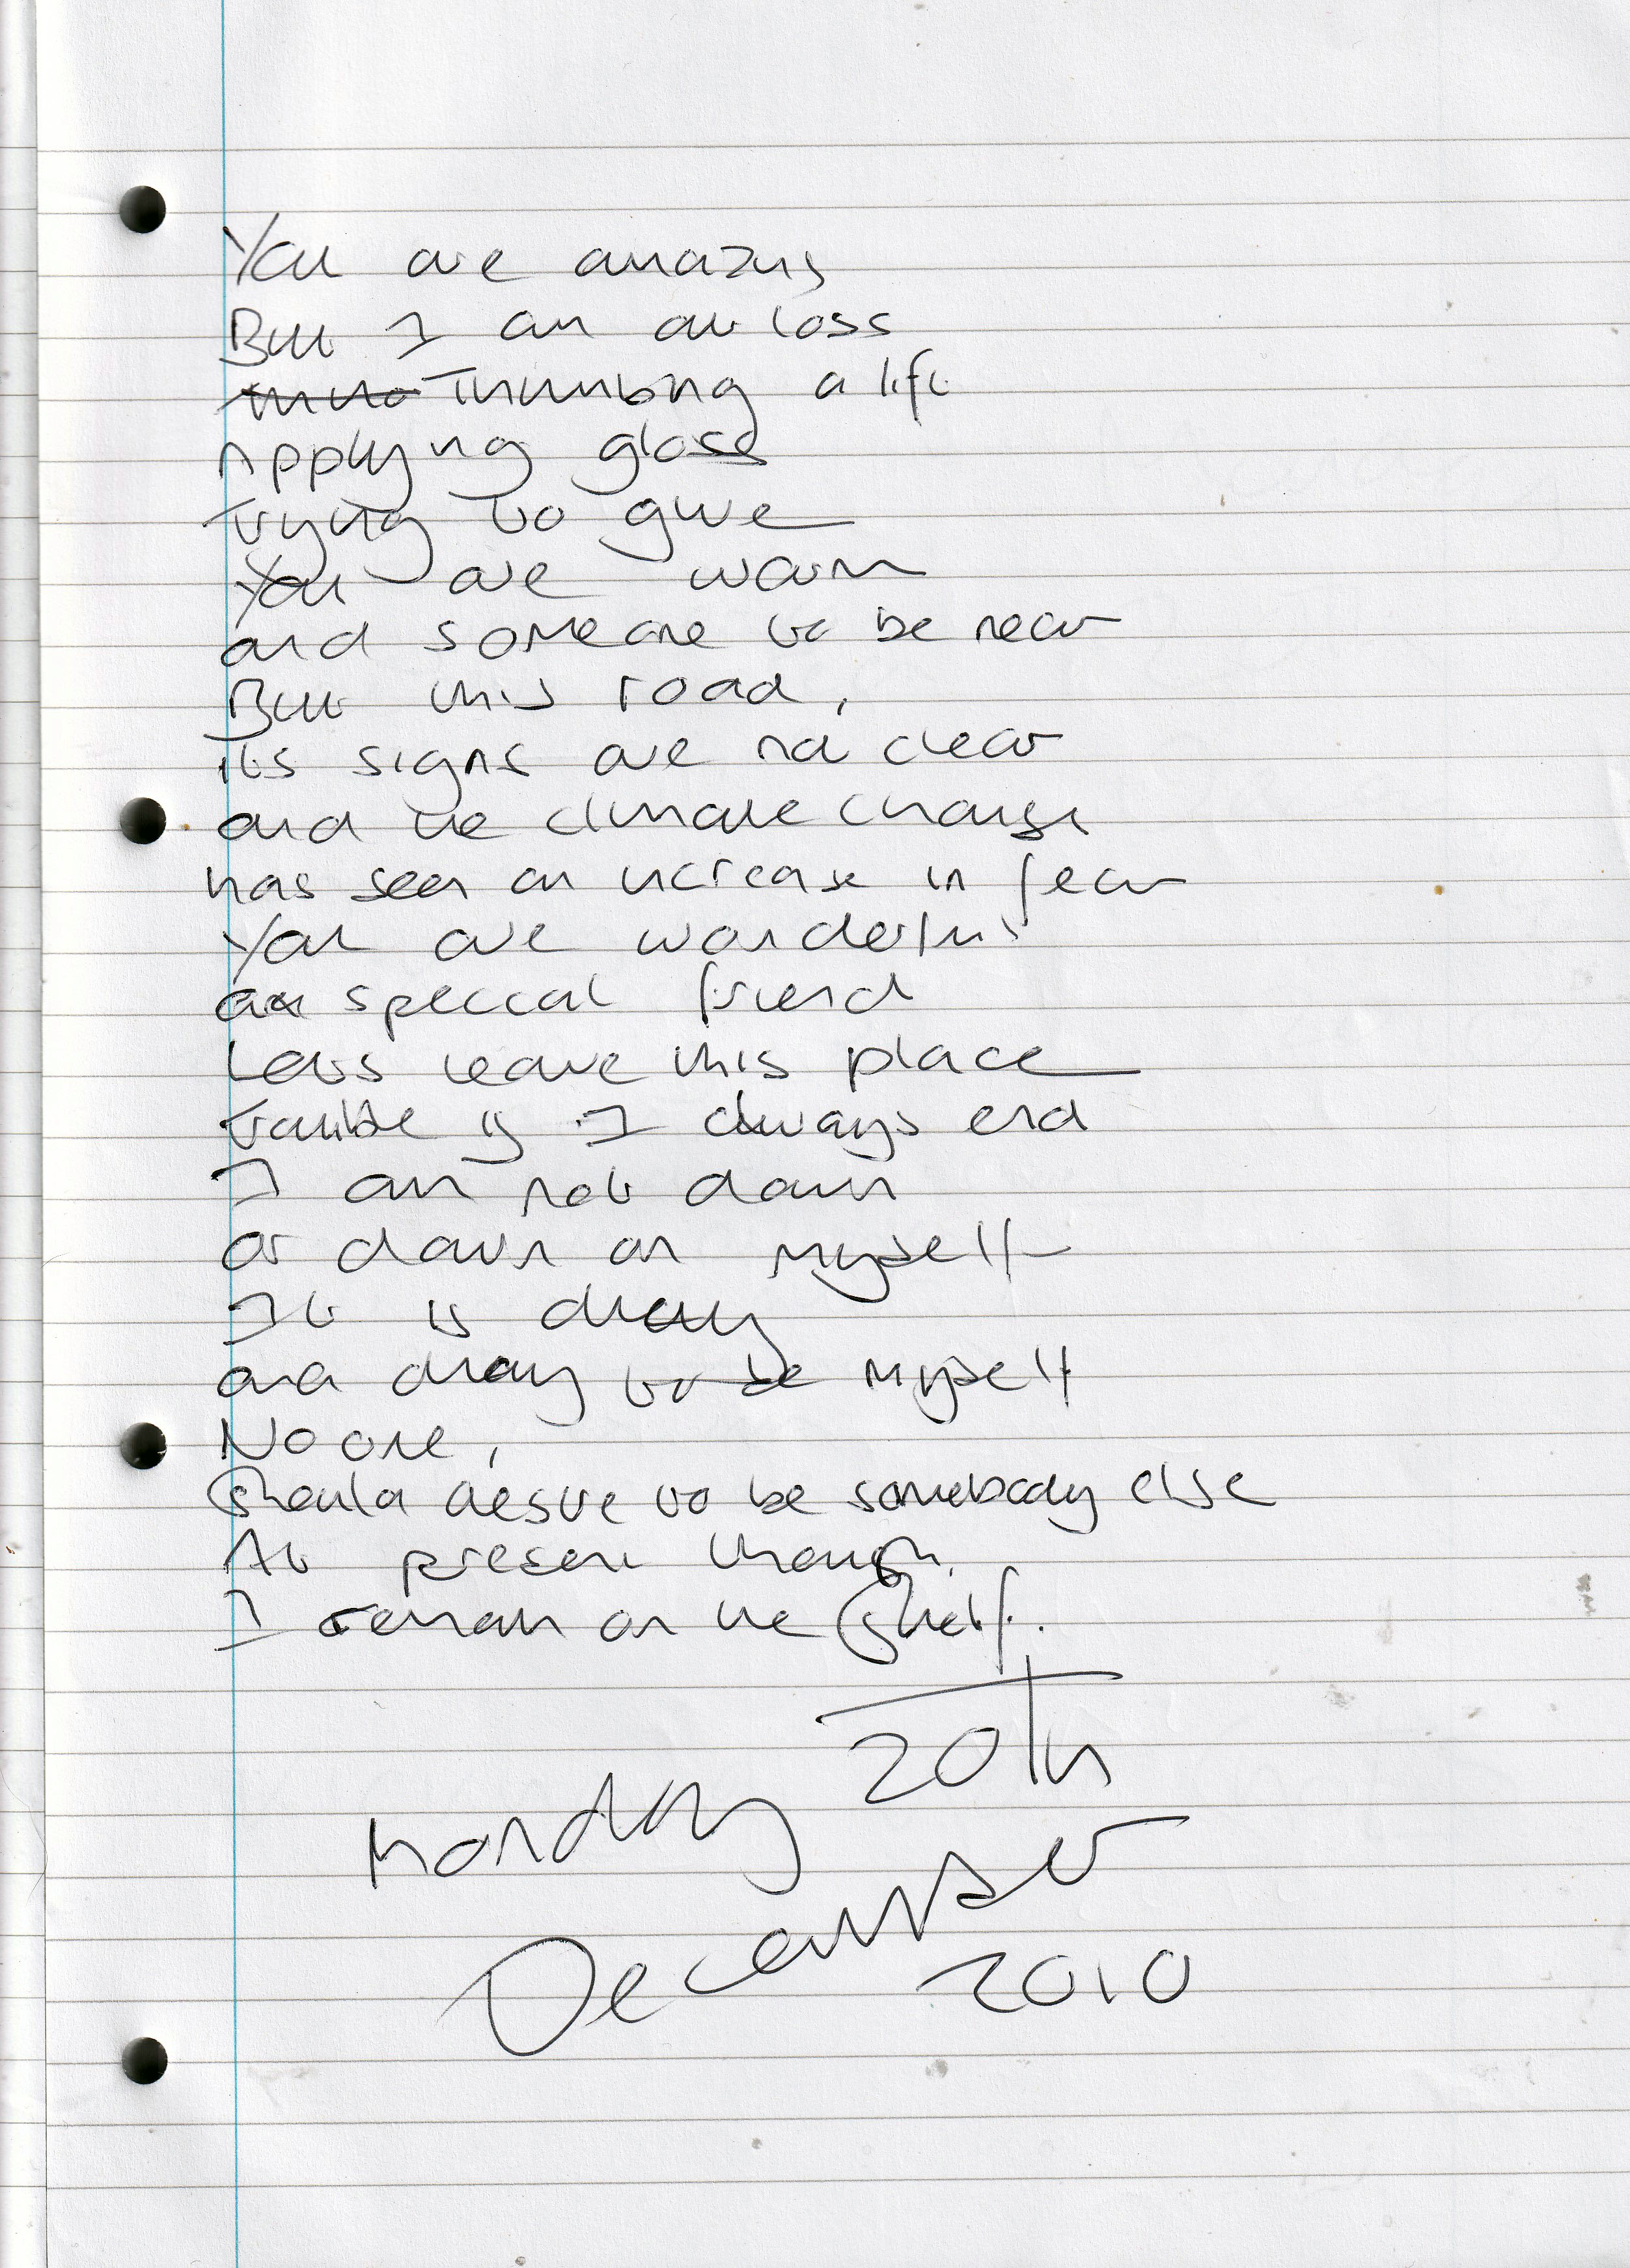 You are amazing
But I am at loss
Thumbing a lift
Applying gloss
trying to give
You are warm
and someone to be near
But this road,
its signs are not clear
and the climate change
has seen an increase in fear
You are wonderful
a special friend
Lets leave this place
trouble is I always end
I am not down
or down on myself
It is okay
and okay to be myself
No one,
Should desire to be somebody else
At present though
I remain on the Shelf.
Monday 20th
December
2010